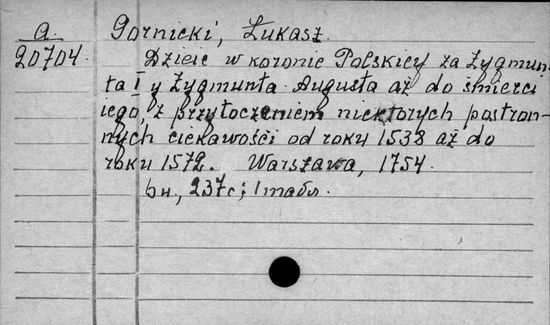 A
20704.
Gornicki, Łukasz.
Dzieie w koronie Polskiey za Zygmun-
ta I y Zygmunta Augusta aż do śmierci
iego, z przytoczeniem niektorych postron-
nych ciekawości od roku 1538 aż do
roku 1572. Warszawa, 1754.
bn., 237c; 1 табл.